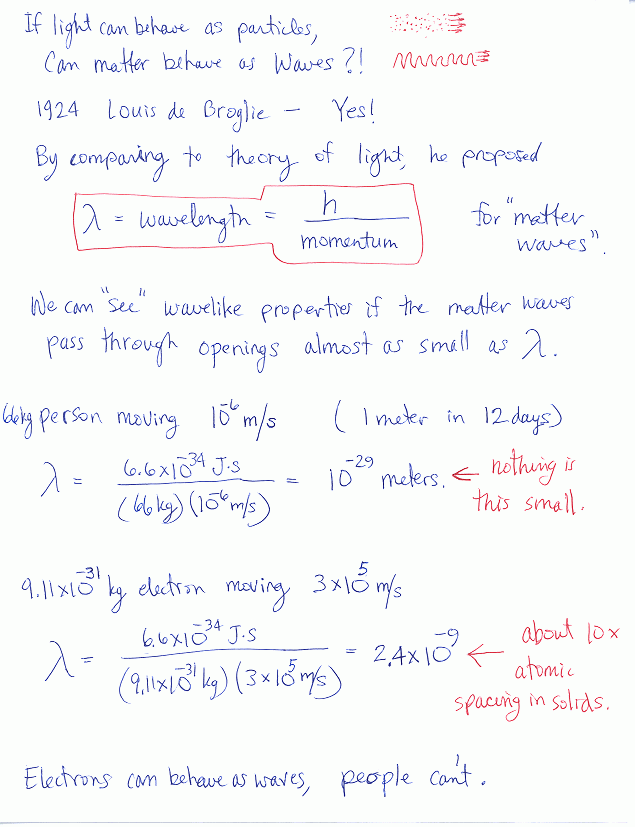 If light can behave as particles,
Can matter behave as Waves?!
1924 Louis de Broglie – Yes!
By comparing to theory of light, he proposed
λ = wavelength = h / momentum for "matter waves".
We can "see" wavelike properties if the matter waves
pass through openings almost as small as λ.
66kg person moving 10⁻⁶ m/s (1 meter in 12 days)
λ = 6.6×10⁻³⁴ J·s / (66 kg)(10⁻⁶ m/s) = 10⁻²⁹ meters. ← nothing is this small.
9.11×10⁻³¹ kg electron moving 3×10⁵ m/s
λ = 6.6×10⁻³⁴ J·s / (9.11×10⁻³¹ kg)(3×10⁵ m/s) = 2.4×10⁻⁹ ← about 10x atomic spacing in solids.
Electrons can behave as waves, people can't.